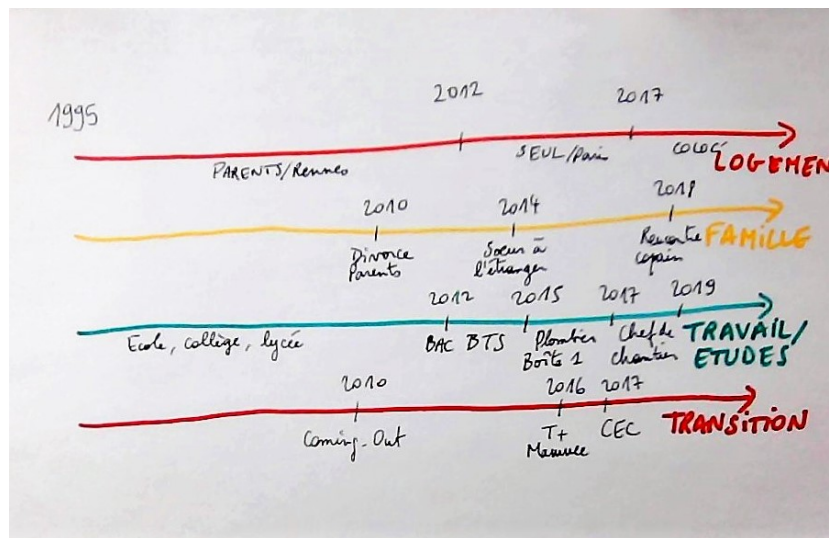 1995
2012
2017
PARENTS/Rennes
SEUL/Paris
COLOC
LOGEMEN
2010
2014
2018
Divorce
Parents
Soeur à
l'étranger
Rencontre
copain
FAMILLE
2012
2015
2017
2019
Ecole, collège, lycée
BAC BTS
Plombier
Boîte 1
Chef de
chantier
TRAVAIL/
ETUDES
2010
2016
2017
Coming-Out
T+
Mammec
CEC
TRANSITION